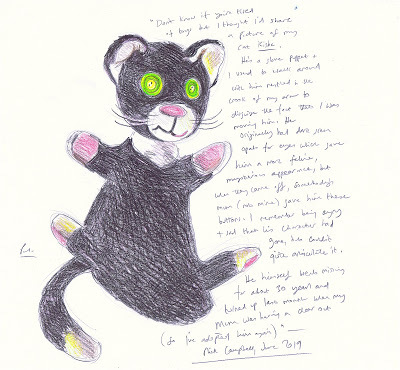 "Don't know if you're tired
of toys but I thought I'd share
a picture of my
cat Kiske.
He's a glove puppet &
I used to walk around
with him nestled in the
crook of my arm to
disguise the fact that I was
moving him. He
originally had dark
for eyes which gave
him a more feline,
mysterious appearance, but
when they came off, somebody's
mum (not mine) gave him these
buttons. I remember being angry
& sad that his character had
gone, but couldn't
quite articulate it.
He himself went missing
for about 30 years and
turned up last month when my
Mum was having a clear out
(so I've adopted him again)" —
Campbell, June 2019